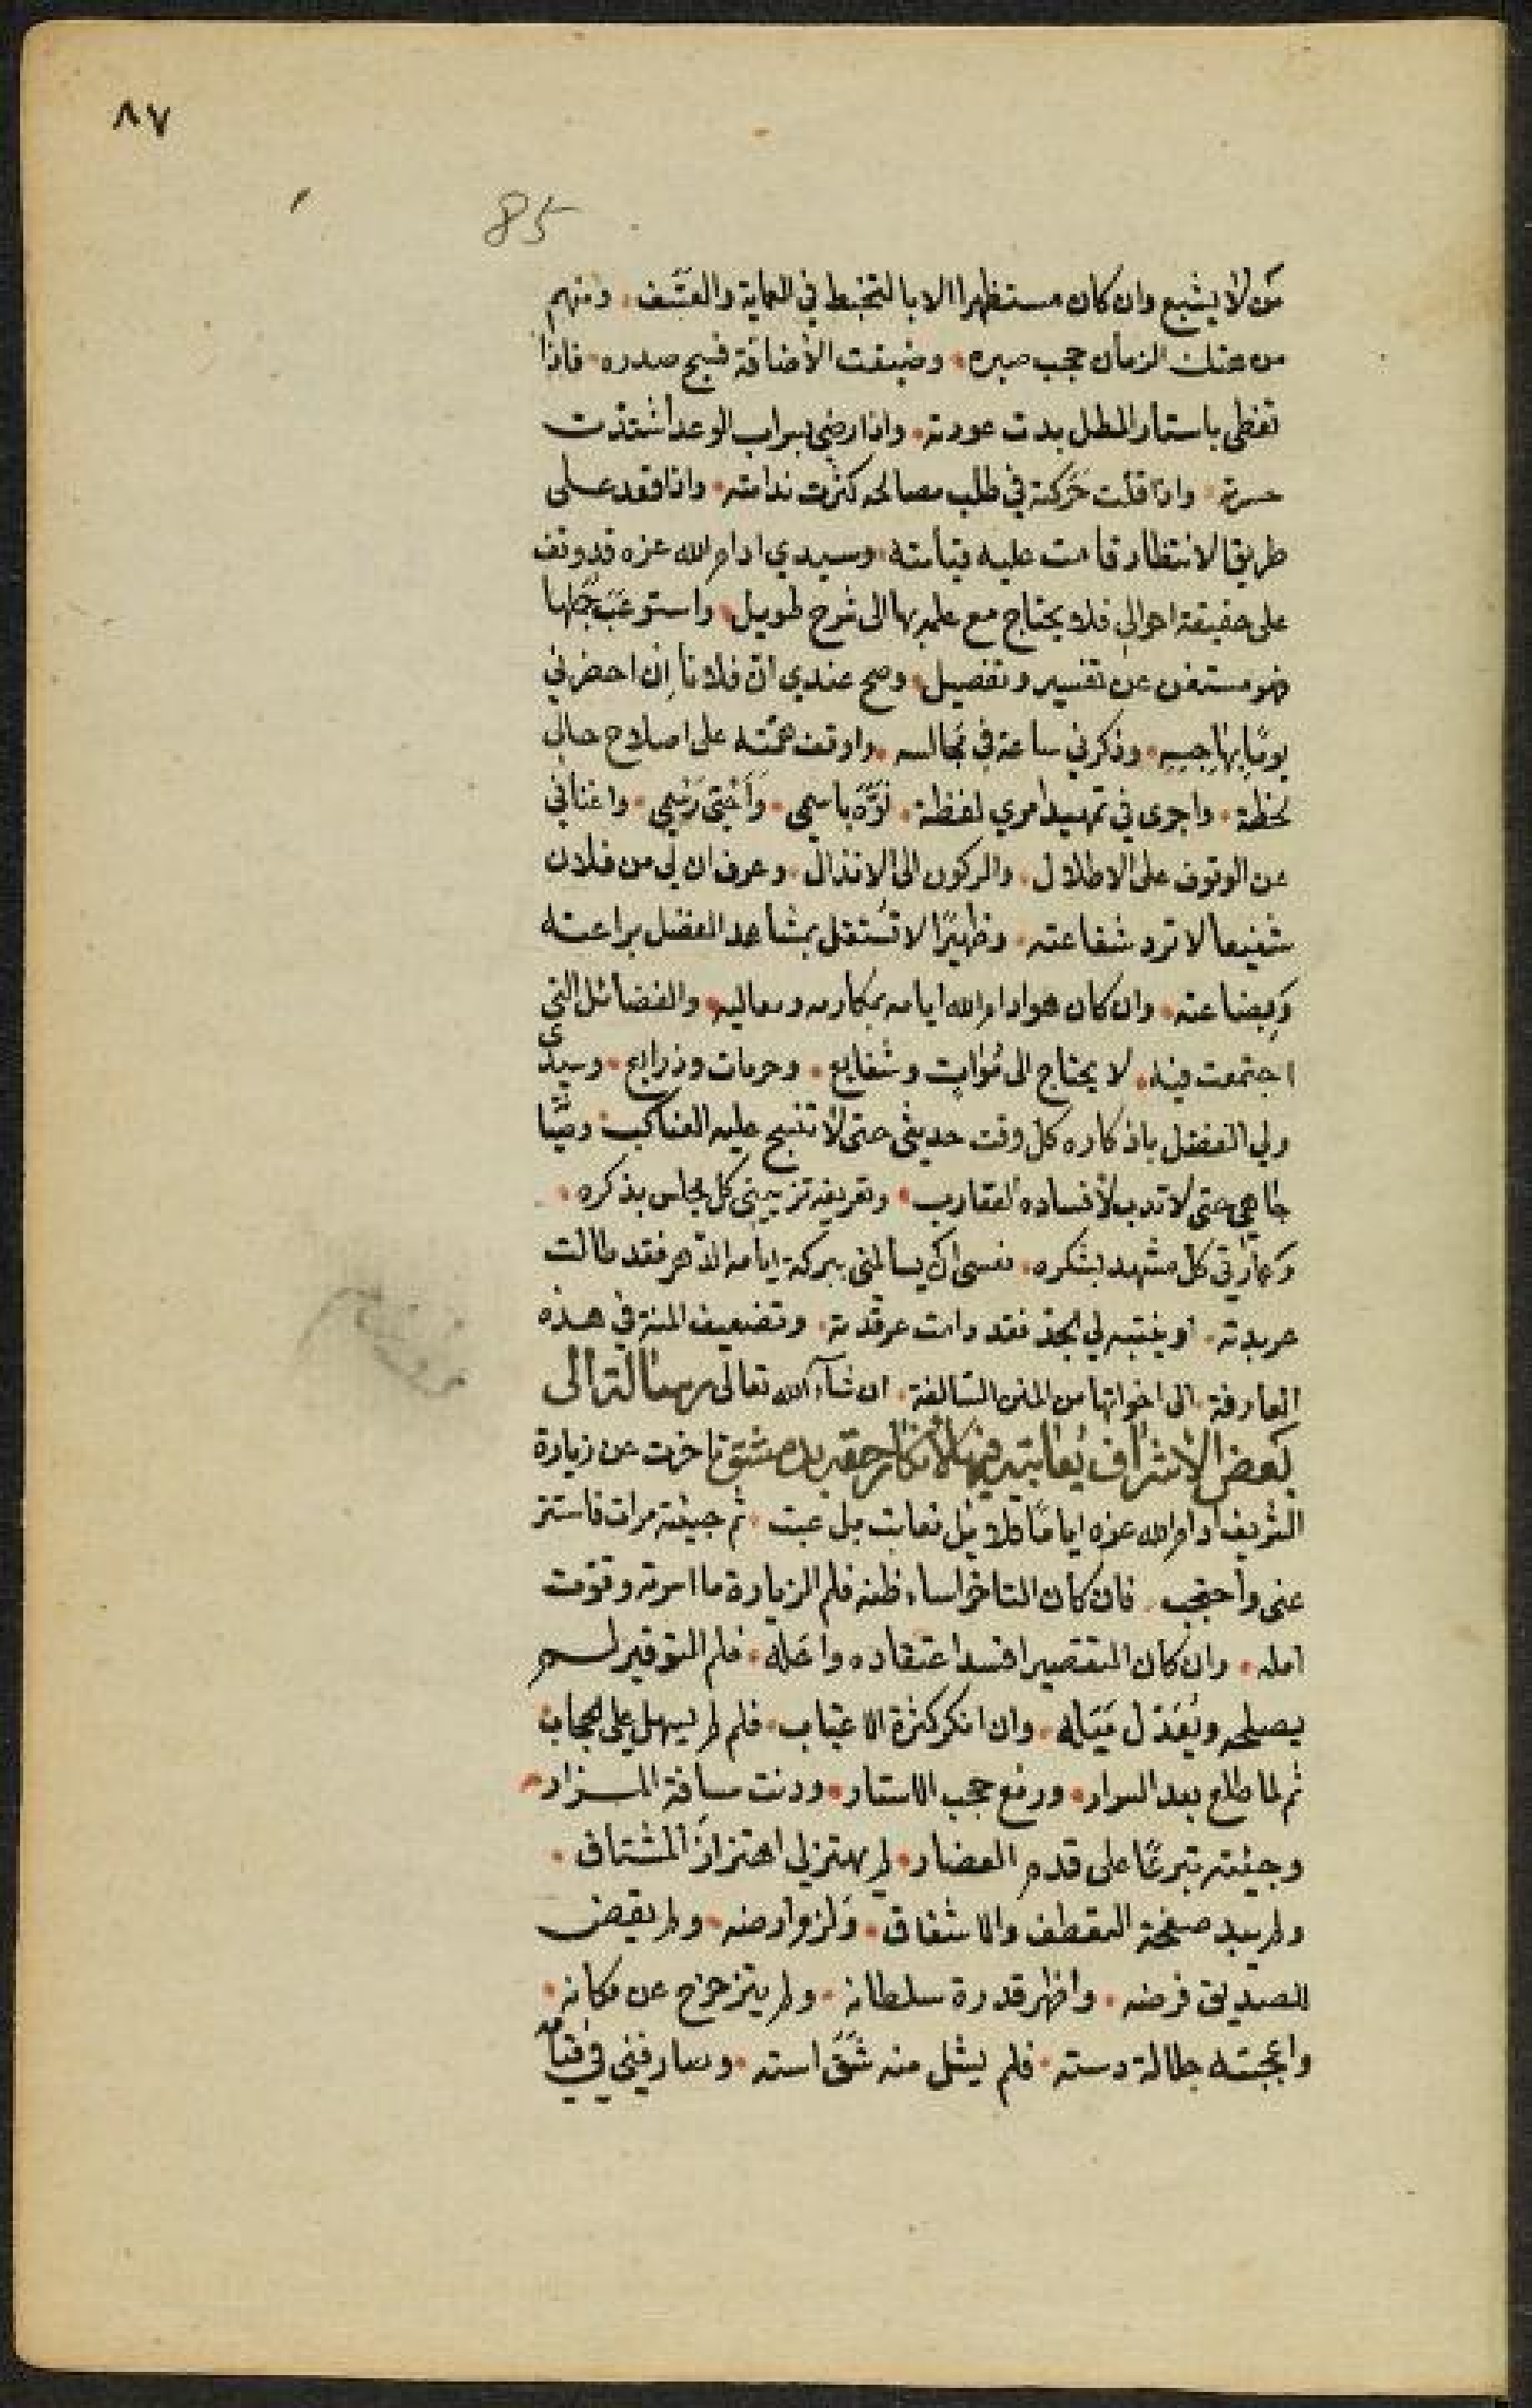 ٨٧
85
من لا يشبع وان كان مستظهرا الا بالتخبط في العماية والعسف ومنهم
من هتك الزمان حجب صبره وضيقت الاضاقة فسيح صدره فاذا
تغطى باستار المطل بدت عورته واذا رضي بسراب الوعد اشتدت
حسرته واذا قلت حركته في طلب مصالحه كثرت ندامته واذا وقد على
طريق الانتظار قامت عليه قيامته وسيدي ادام الله عزه قد وقف
على حقيقة احوالي فلا يحتاج مع علمه بها الى شرح طويل واستوعب جملها
فهو مستغن عن تفسير وتفصيل وصح عندي ان فلانا إن احضرني
يوما بهاجسه وذكرني ساعة في مجالسه واوقف همته على اصلاح حالي
لحظة واجرى في تمهيد امري لفظة نوّه باسمي وأحيى رسمي واغناني
عن الوقوف على الاطلال والركون الى الانذال وعرف ان لي من فلان
شفيعا لا ترد شفاعته وظهيرا لا تستقل بمشاهد الفضل براعته
وبضاعته وان كان هو ادام الله ايامه بمكارمه ومعاليه والفضائل التي
اجتمعت فيه لا يحتاج الى مُوات وشفايع وحرمات وذرايع وسيدى
ولي التفضل باذكاره كل وقت حديثي حتى لا تنسج عليه العناكب
حتى لا تدب لافساده العقارب وتعريفه تزييني كل مجلس بذكره
وعمارتي كل مشهد بشكره فعسى ان يسالمني ببركة ايامه الدهر فقد طالت
عربدته او ينتبه لي الجد فقد دامت رقدته وتضعيف المنة في هذه
العارفة الى اخواتها من المنن السالفة ان شآء الله تعالى رسالة الى
بعض الاشراف يعاتبه فيها دمشق تاخرت عن زيارة
الشريف ادام الله عزه اياما فلا بل تعاتب بل عبت ثم جيئته مرات فاستتر
عنى واحتجب فان كان التاخر اساء ظنه فلم الزيارة ما اسرته وقوّت
امله وان كان التقصير افسد اعتقاده واعله فلم التوقير لم
يصلحه ويعدل ميَله وان انكر كثرة الاغباب فلم لم يسهل على الحجاب
ثم لما طلع بعد السرار ورفع حجب الاستار ودنت مسافة المزار
وجيئته تبرعا على قدم لم يهتز لي اهتزاز المشتاق
ولم يبد صفحة التعطف والاشفاق ولزم ارضه ولم يقض
للصديق فرضه واظهر قدرة سلطانه ولم يتزحزح عن مكانه
واعجبته جلالة دسته فلم يشل منه شق استه وسارقني في قيامه